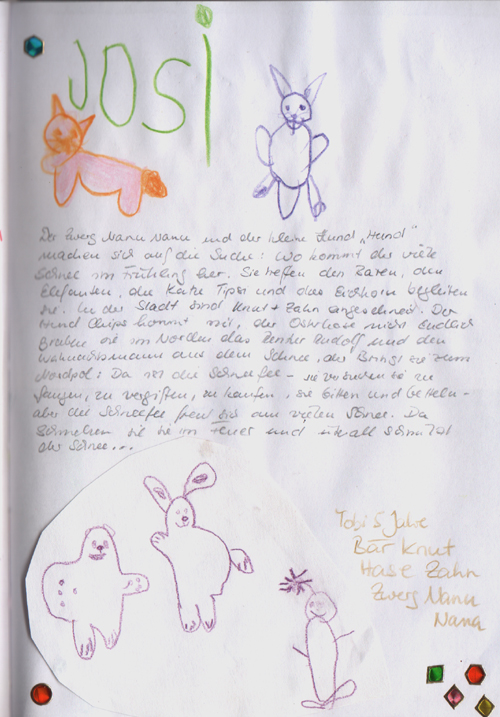 JOSI
Der Zwerg Nanu Nana und der kleine Hund „Hund"
machen sich auf die Suche: Wo kommt der viele
Schnee im Frühling her. Sie treffen den Raten, den
Elefanten, die Katze Tipsi und das Eichhorn begleiten
sie. In der Stadt sind Knut + Zahn eingeschneit. Der
Hund Chips kommt mit, der Osterhase nicht. Endlich
graben sie im Norden das Rentier Rudolf und den
Weihnachtsmann aus dem Schnee, der bringt sie zum
Nordpol: Da ist die Schneefee - sie versuchen sie zu
fangen, zu vergiften, zu kaufen, sie bitten und betteln -
aber die Schneefee freut sich am vielen Schnee. Da
schmelzen sie sie im Feuer und überall schmilzt
der Schnee...
Tobi 5 Jahre
Bär Knut
Hase Zahn
Zwerg Nanu
Nana